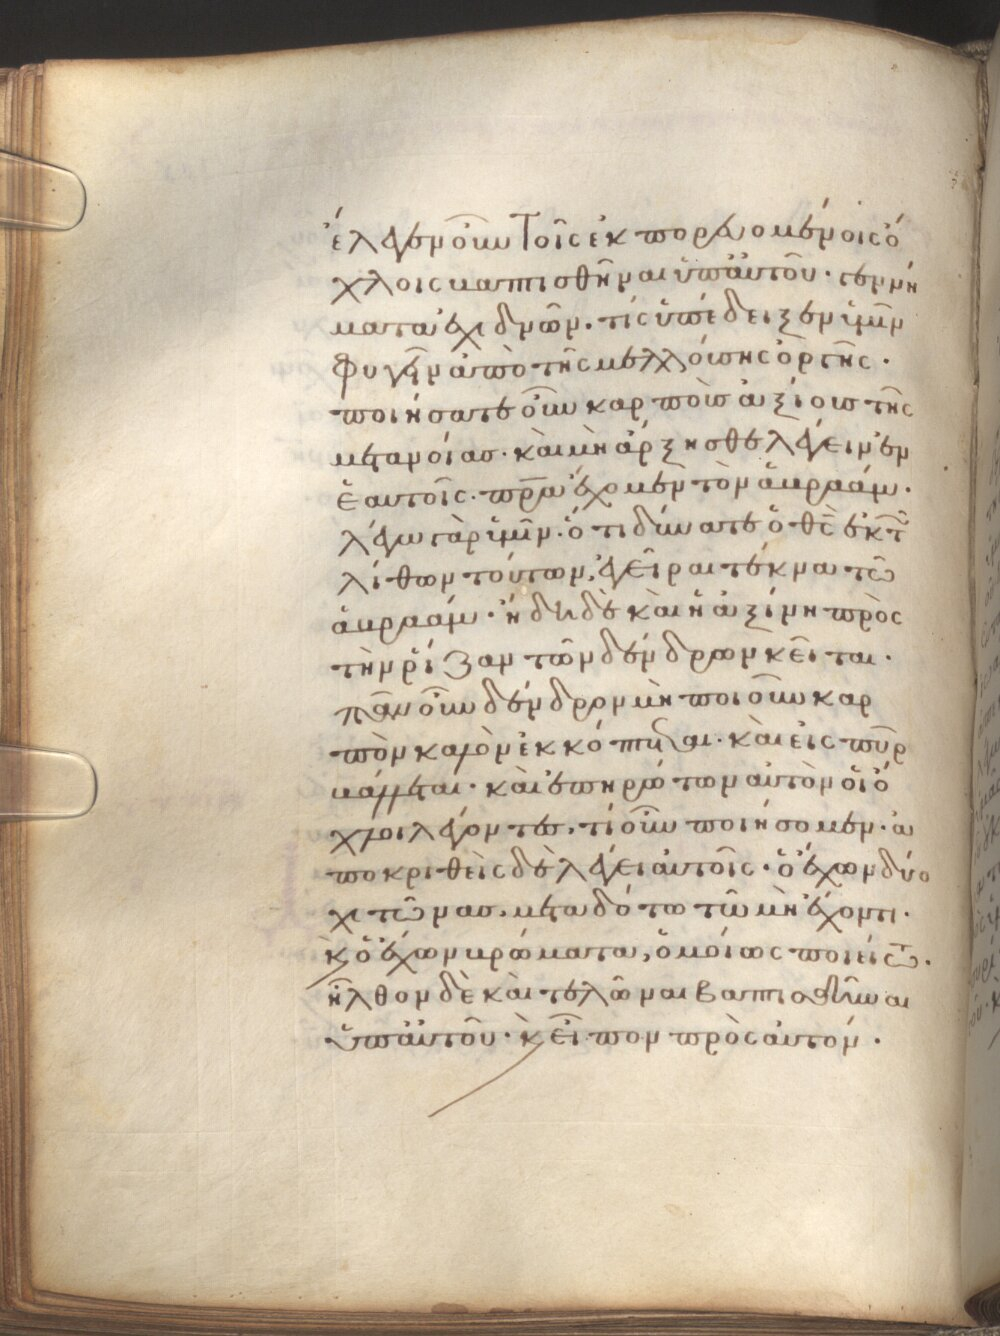 ἔλεγεν οὖν τοῖς ἐκπορευομένοις ὄ
χλοις βαπτισθῆναι ὑπ' αὐτοῦ· γεννή
ματα ἐχιδνῶν. τίς ὑπέδειξεν ὑμῖν
φυγεῖν ἀπὸ τῆς μελλούσης ὀργῆς·
ποιήσατε οὖν καρποὺς ἀξίους τῆς
μετανοίας· καὶ μὴ ἄρξησθε λέγειν ἐν
ἑαυτοῖς· πρα ἔχομεν τὸν ἀβραάμ·
λέγω γὰρ ὑμῖν· ὅτι δύναται ὁ θς ἐκ τῶν
λίθων τούτων, ἐγεῖραι τέκνα τῶ
ἀβραάμ· ἤδη δὲ καὶ ἡ ἀξίνη πρὸς
τὴν ῥίζαν τῶν δένδρων κεῖται·
πᾶν οὖν δένδρον μὴ ποιοῦν καρ
πὸν καλὸν ἐκκόπτεται· καὶ εἰς πῦρ
βάλλεται· καὶ ἐπηρώτων αὐτὸν οἱ ὄ
χλοι λέγοντες, τί οὖν ποιήσομεν· ἀ
ποκριθεὶς δὲ λέγει αὐτοῖς· ὁ ἔχων δύο
χιτῶνας, μεταδότω τῶ μὴ ἔχοντι·
κ ὁ ἔχων βρώματα, ὁμοίως ποιείτω·
ἦλθον δὲ καὶ τελῶναι βαπτισθῆναι
ὑπ' αὐτοῦ· κ εἶπον πρὸς αὐτόν·